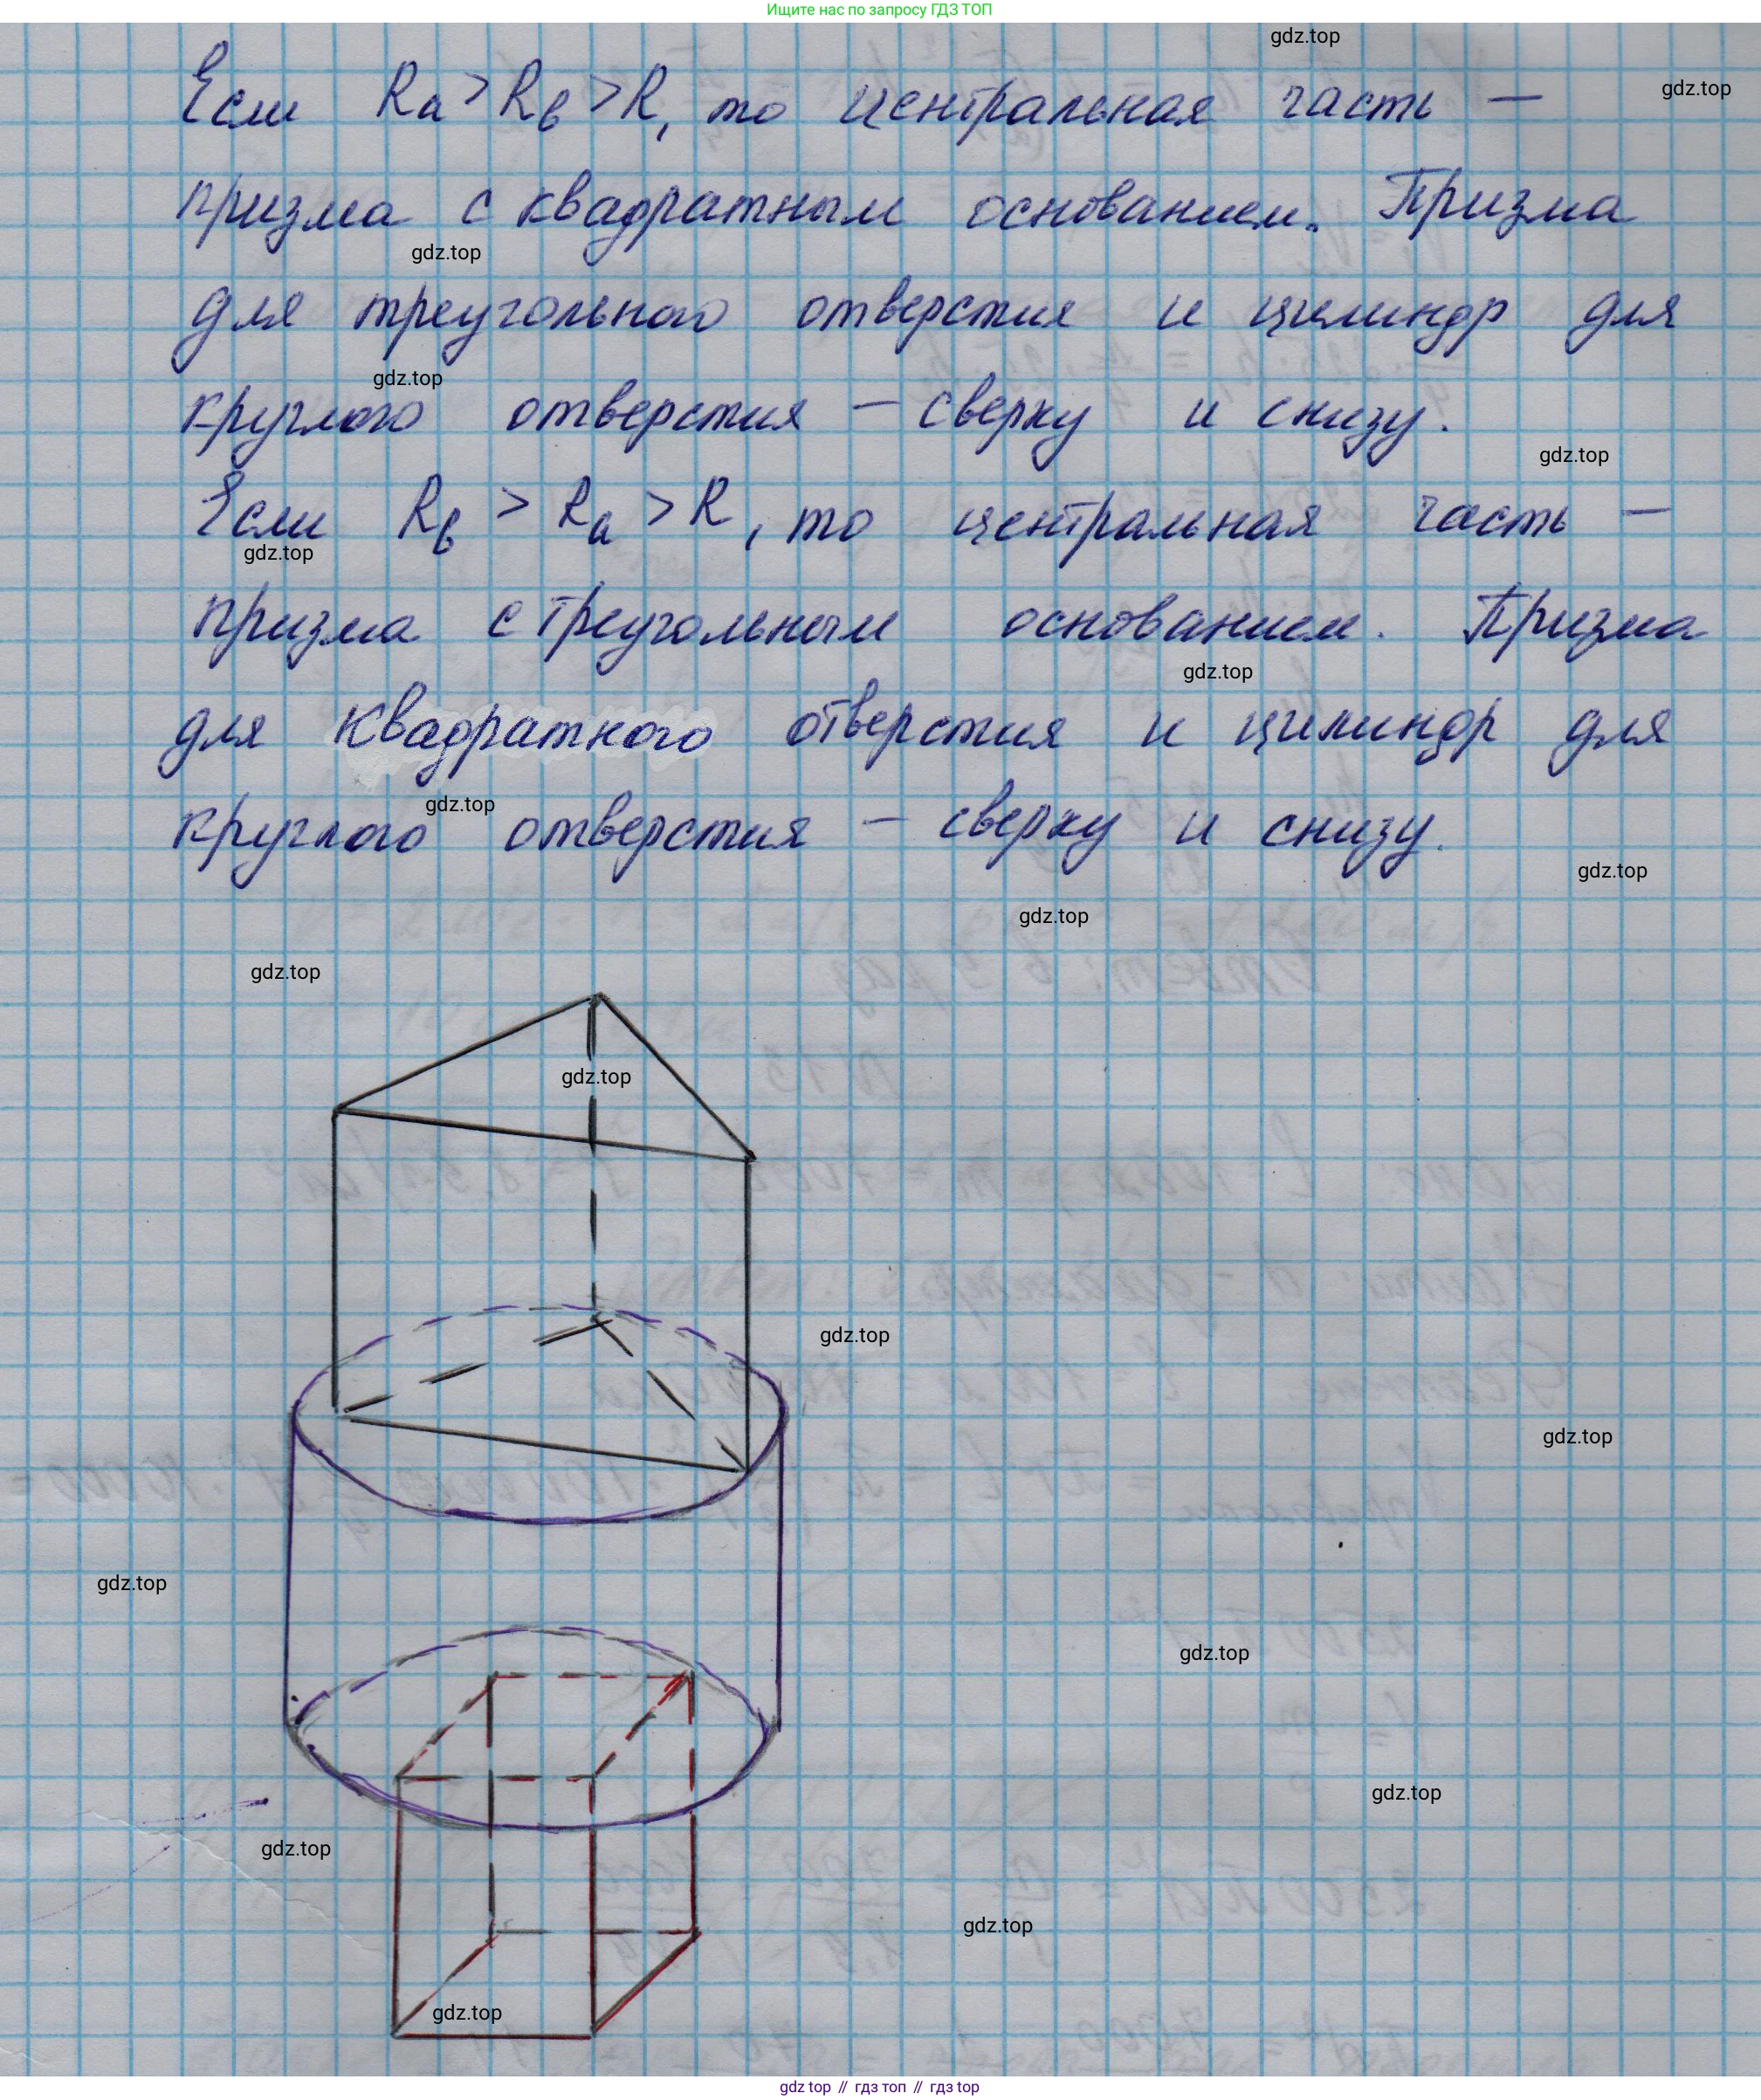 Ищите нас по запросу ГДЗ ТОП
gdz.top
Если Rа > Rв > R, то центральная часть —
gdz.top
призма с квадратным основанием. Призма
gdz.top
для треугольного отверстия и цилиндр для
gdz.top
круглого отверстия — сверху и снизу.
gdz.top
Если Rв > Rа > R, то центральная часть —
gdz.top
призма с треугольным основанием. Призма
gdz.top
для квадратного отверстия и цилиндр для
gdz.top
круглого отверстия — сверху и снизу.
gdz.top
gdz.top
gdz.top
gdz.top
gdz.top
gdz.top
gdz.top
gdz.top
gdz.top
gdz.top
gdz.top
gdz.top
gdz top // гдз топ // гдз top